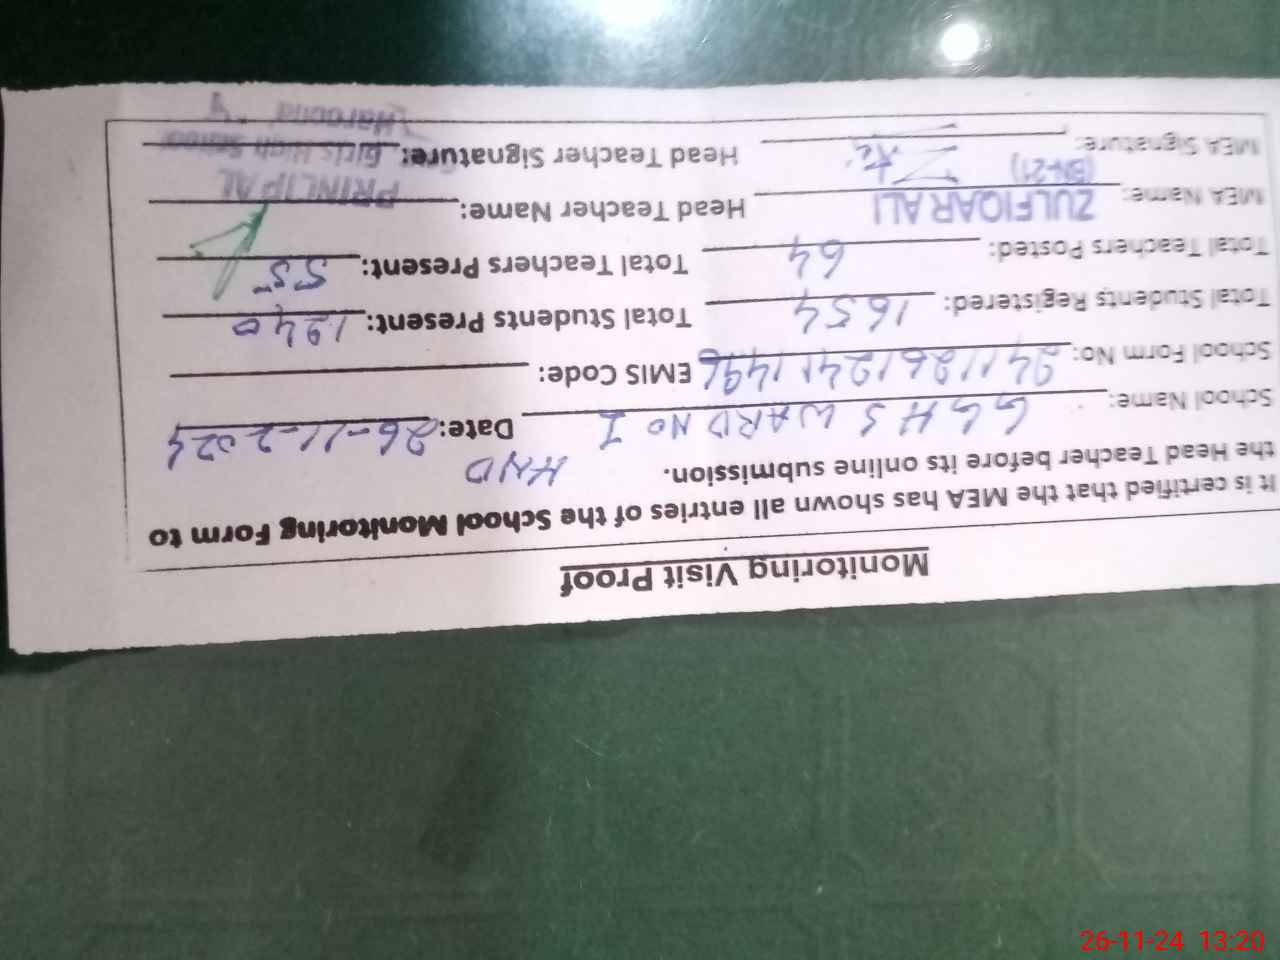 Monitoring Visit Proof
It is certified that the MEA has shown all entries of the School Monitoring Form to
the Head Teacher before its online submission. HND
School Name: GGHS WARD NO I Date: 26-11-2024
School Form No: 24112612411496 EMIS Code:
Total Students Registered: 1654 Total Students Present: 1240
Total Teachers Posted: 64 Total Teachers Present: 55
MEA Name: ZULFIQAR ALI Head Teacher Name: PRINCIPAL
(BN-21)
MEA Signature: Head Teacher Signature: Girls High School
Haroona
26-11-24 13:20